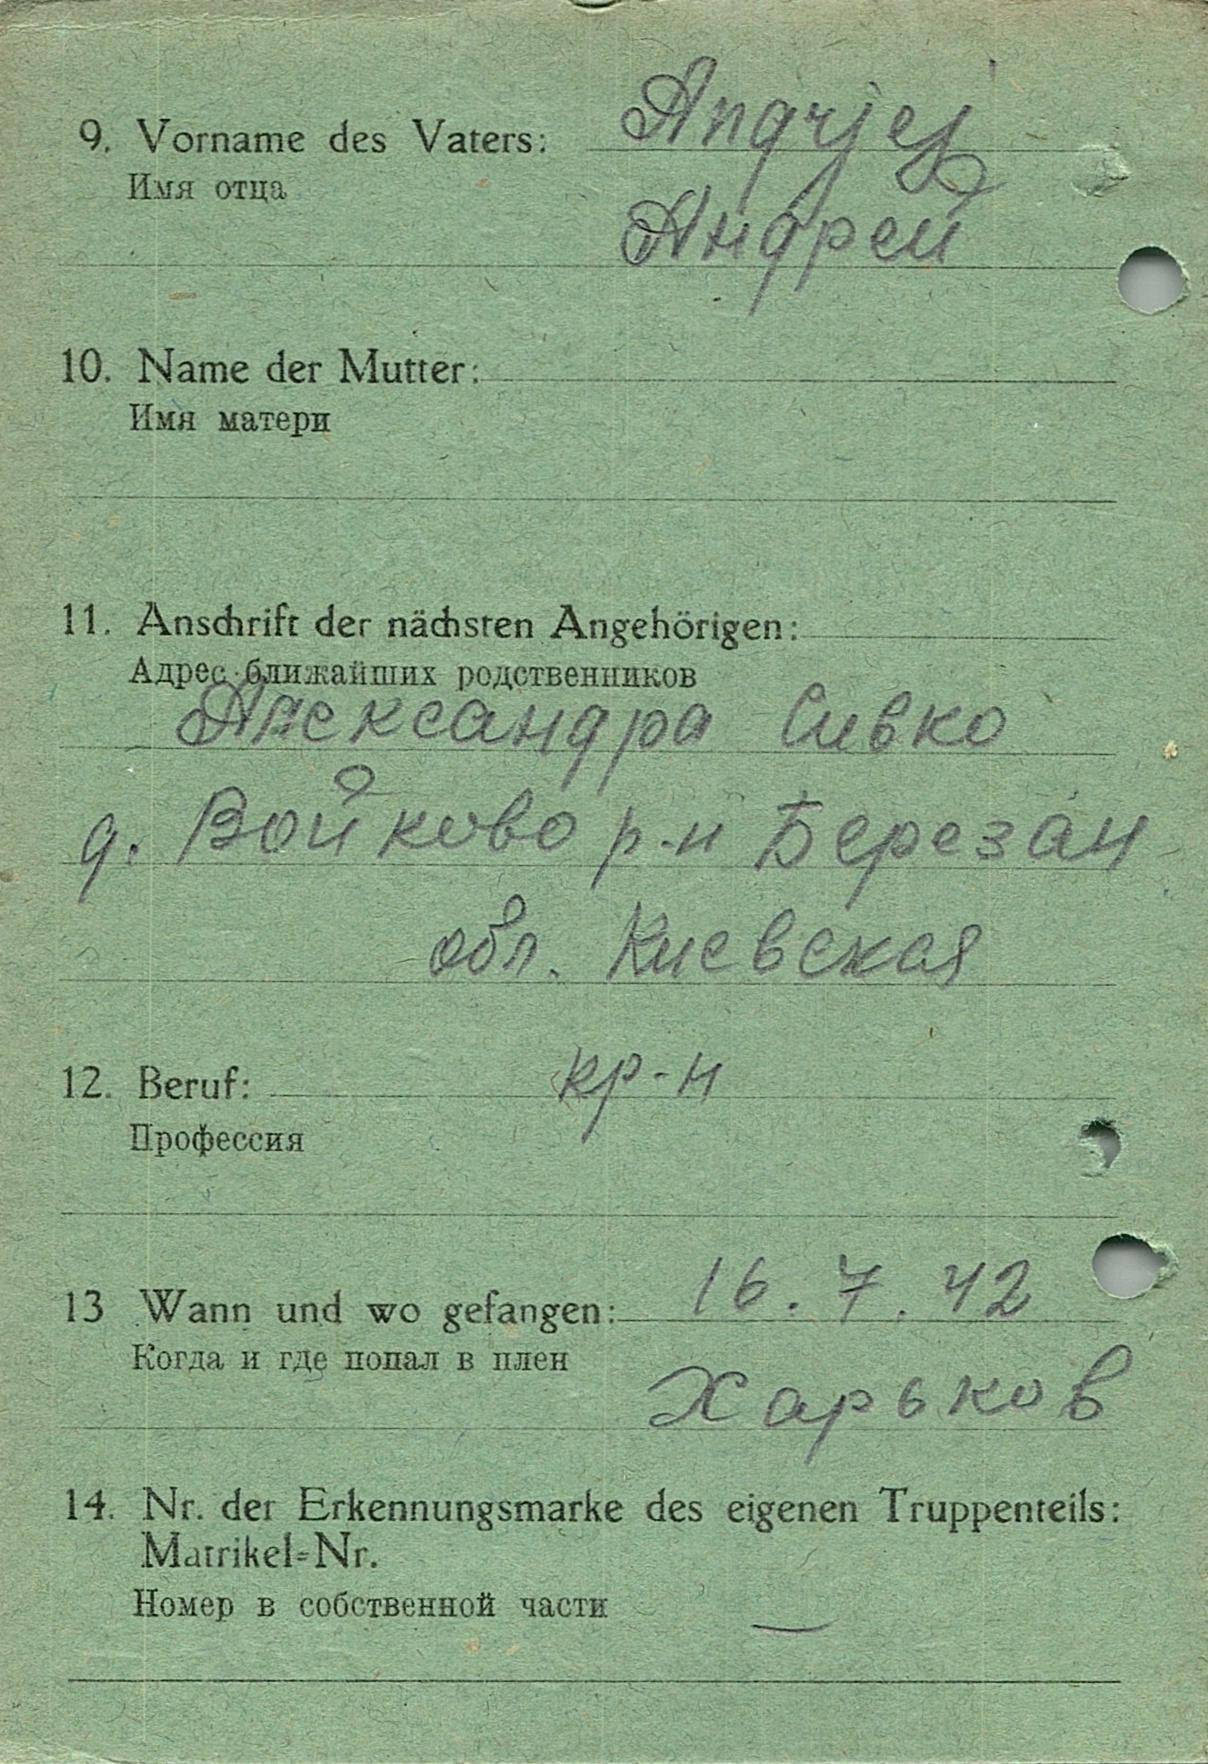 9. Vorname des Vaters: Andrjej
Имя отца
Андрей
10. Name der Mutter:
Имя матери
11. Anschrift der nächsten Angehörigen:
Адрес ближайших родственников
Александра Сивко
д. Войково р-н Березан
обл. Киевская
12. Beruf: кр-н
Профессия
13 Wann und wo gefangen: 16. 7. 42
Когда и где попал в плен
Харьков
14. Nr. der Erkennungsmarke des eigenen Truppenteils:
Matrikel=Nr.
Номер в собственной части —